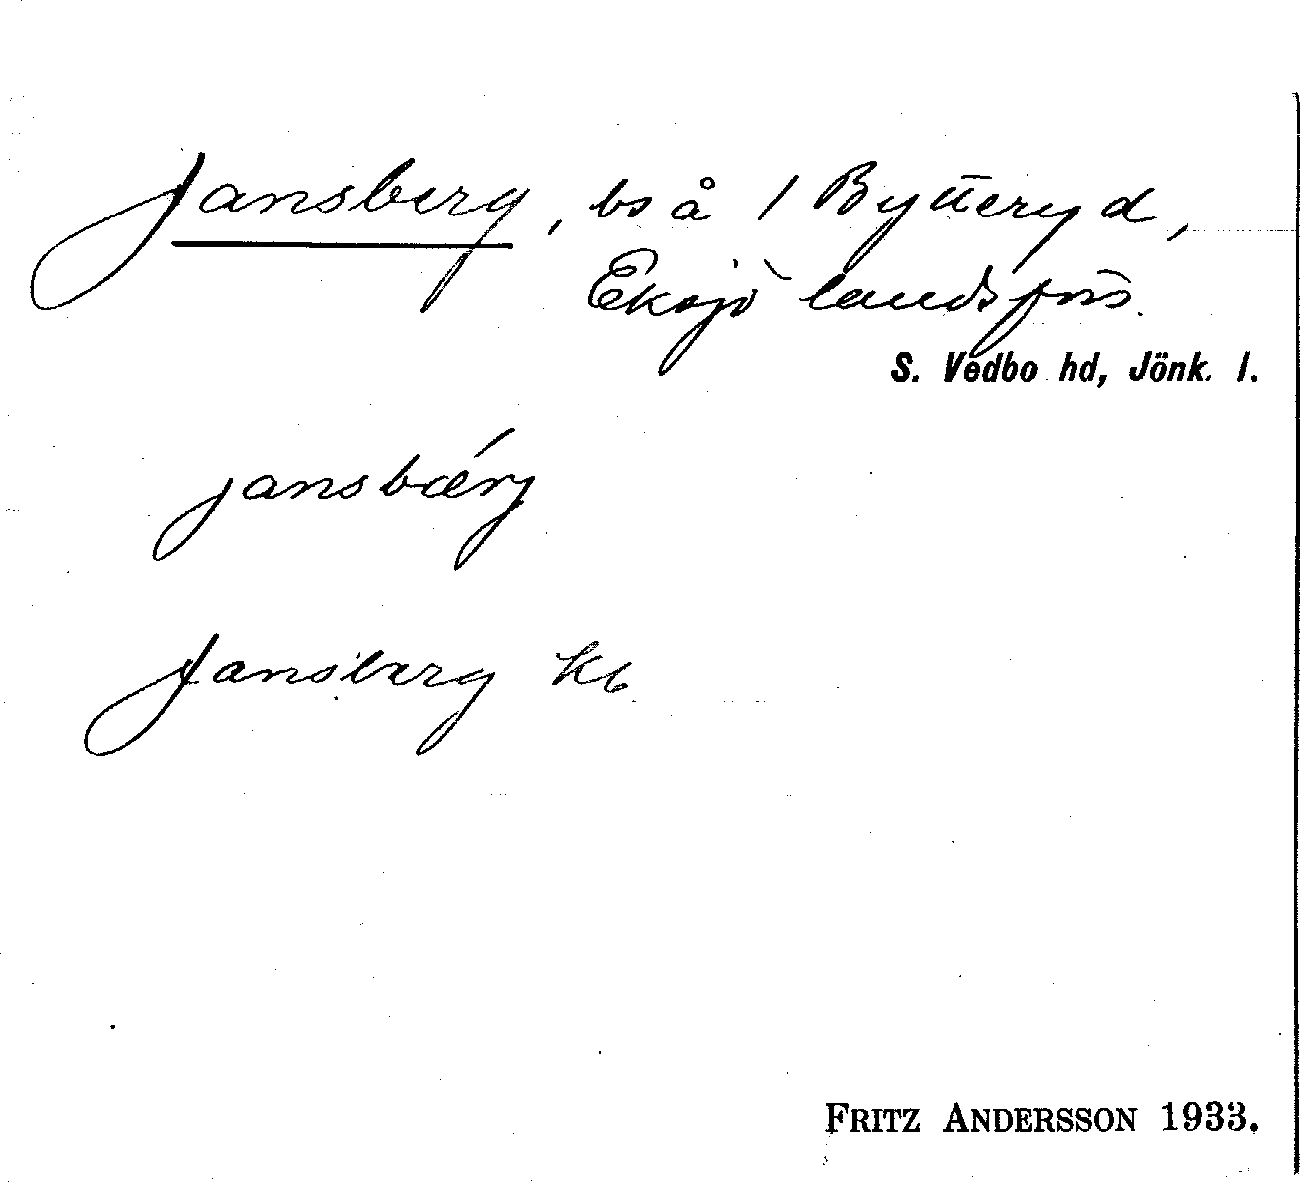 Jansberg, bs å 1 Bytteryd,
Eksjö landsförs.
S. Vedbo hd, Jönk. l.
jansbǽrj
Jansberg kb
FRITZ ANDERSSON 1933.